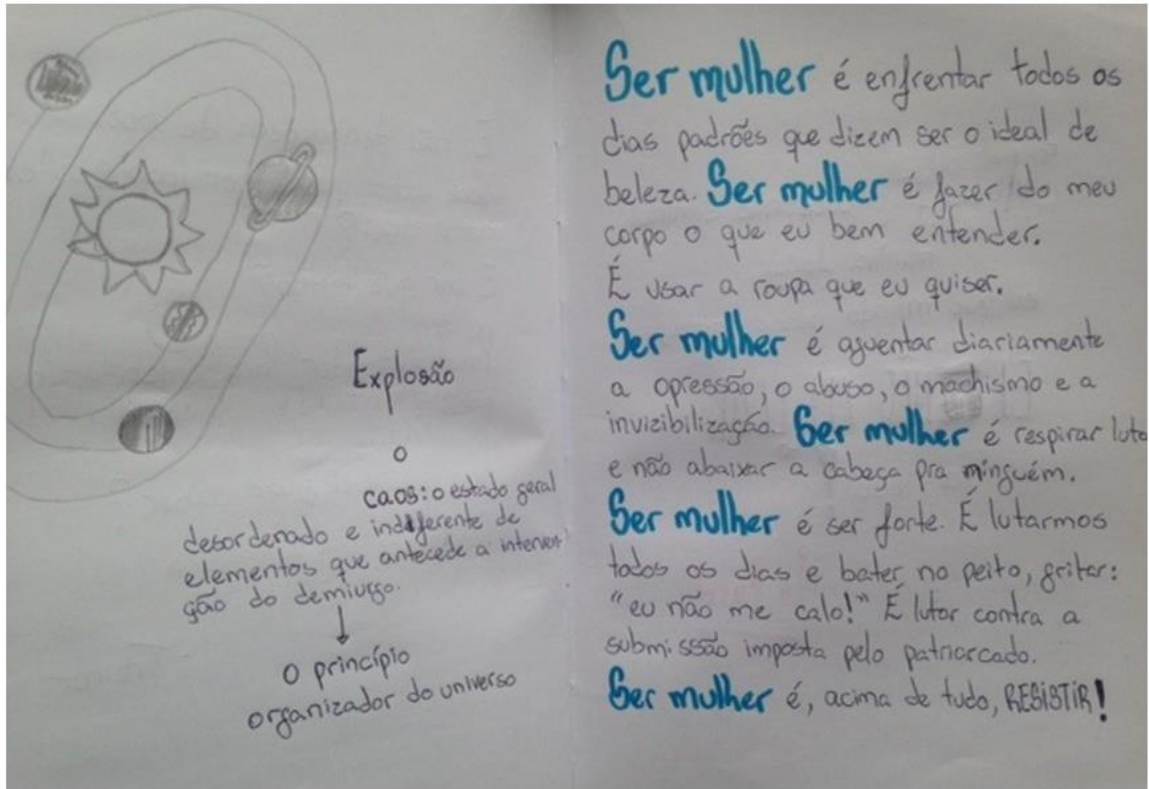 Explosão
o
caos: o estado geral
desordenado e indiferente de
elementos que antecede a interven-
ção do demiurgo.
O princípio
organizador do universo
Ser mulher é enfrentar todos os
dias padrões que dizem ser o ideal de
beleza. Ser mulher é fazer do meu
corpo o que eu bem entender.
É usar a roupa que eu quiser.
Ser mulher é aguentar diariamente
a opressão, o abuso, o machismo e a
invizibilização. Ser mulher é respirar luta
e não abaixar a cabeça pra ninguém.
Ser mulher é ser forte. É lutarmos
todos os dias e bater no peito, gritar:
"eu não me calo!" É lutar contra a
submissão imposta pelo patriarcado.
Ser mulher é, acima de tudo, RESISTIR!